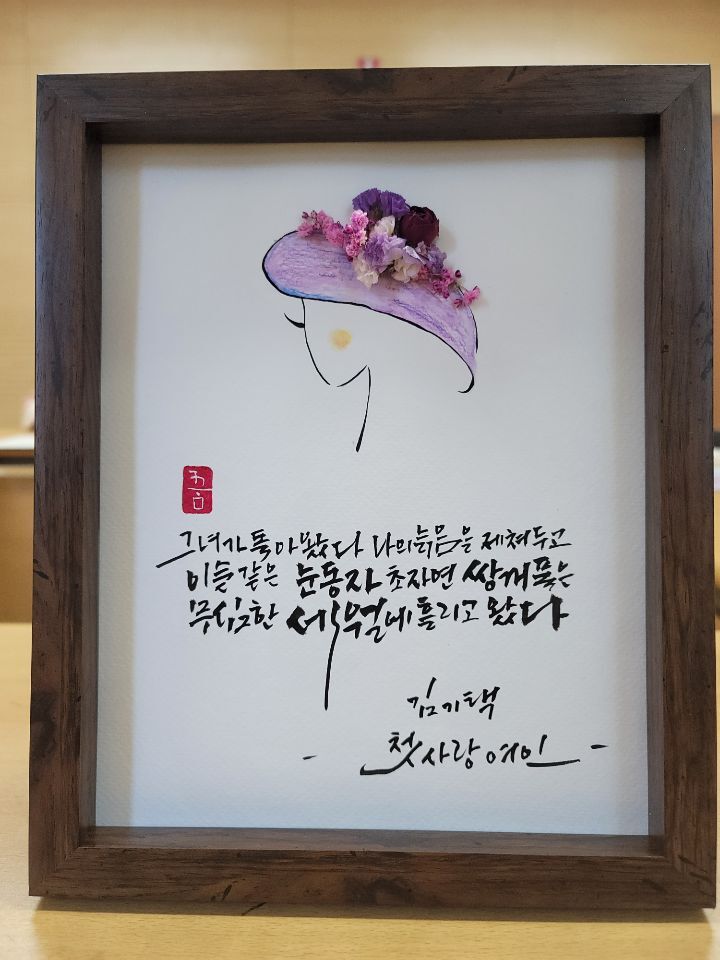 그녀가 돌아봤다 나의 늙음을 제쳐두고
이슬같은 눈동자 초자연 쌍꺼풀은
무심한 세월에 흘리고 왔다
김기택
- 첫사랑 여인 -